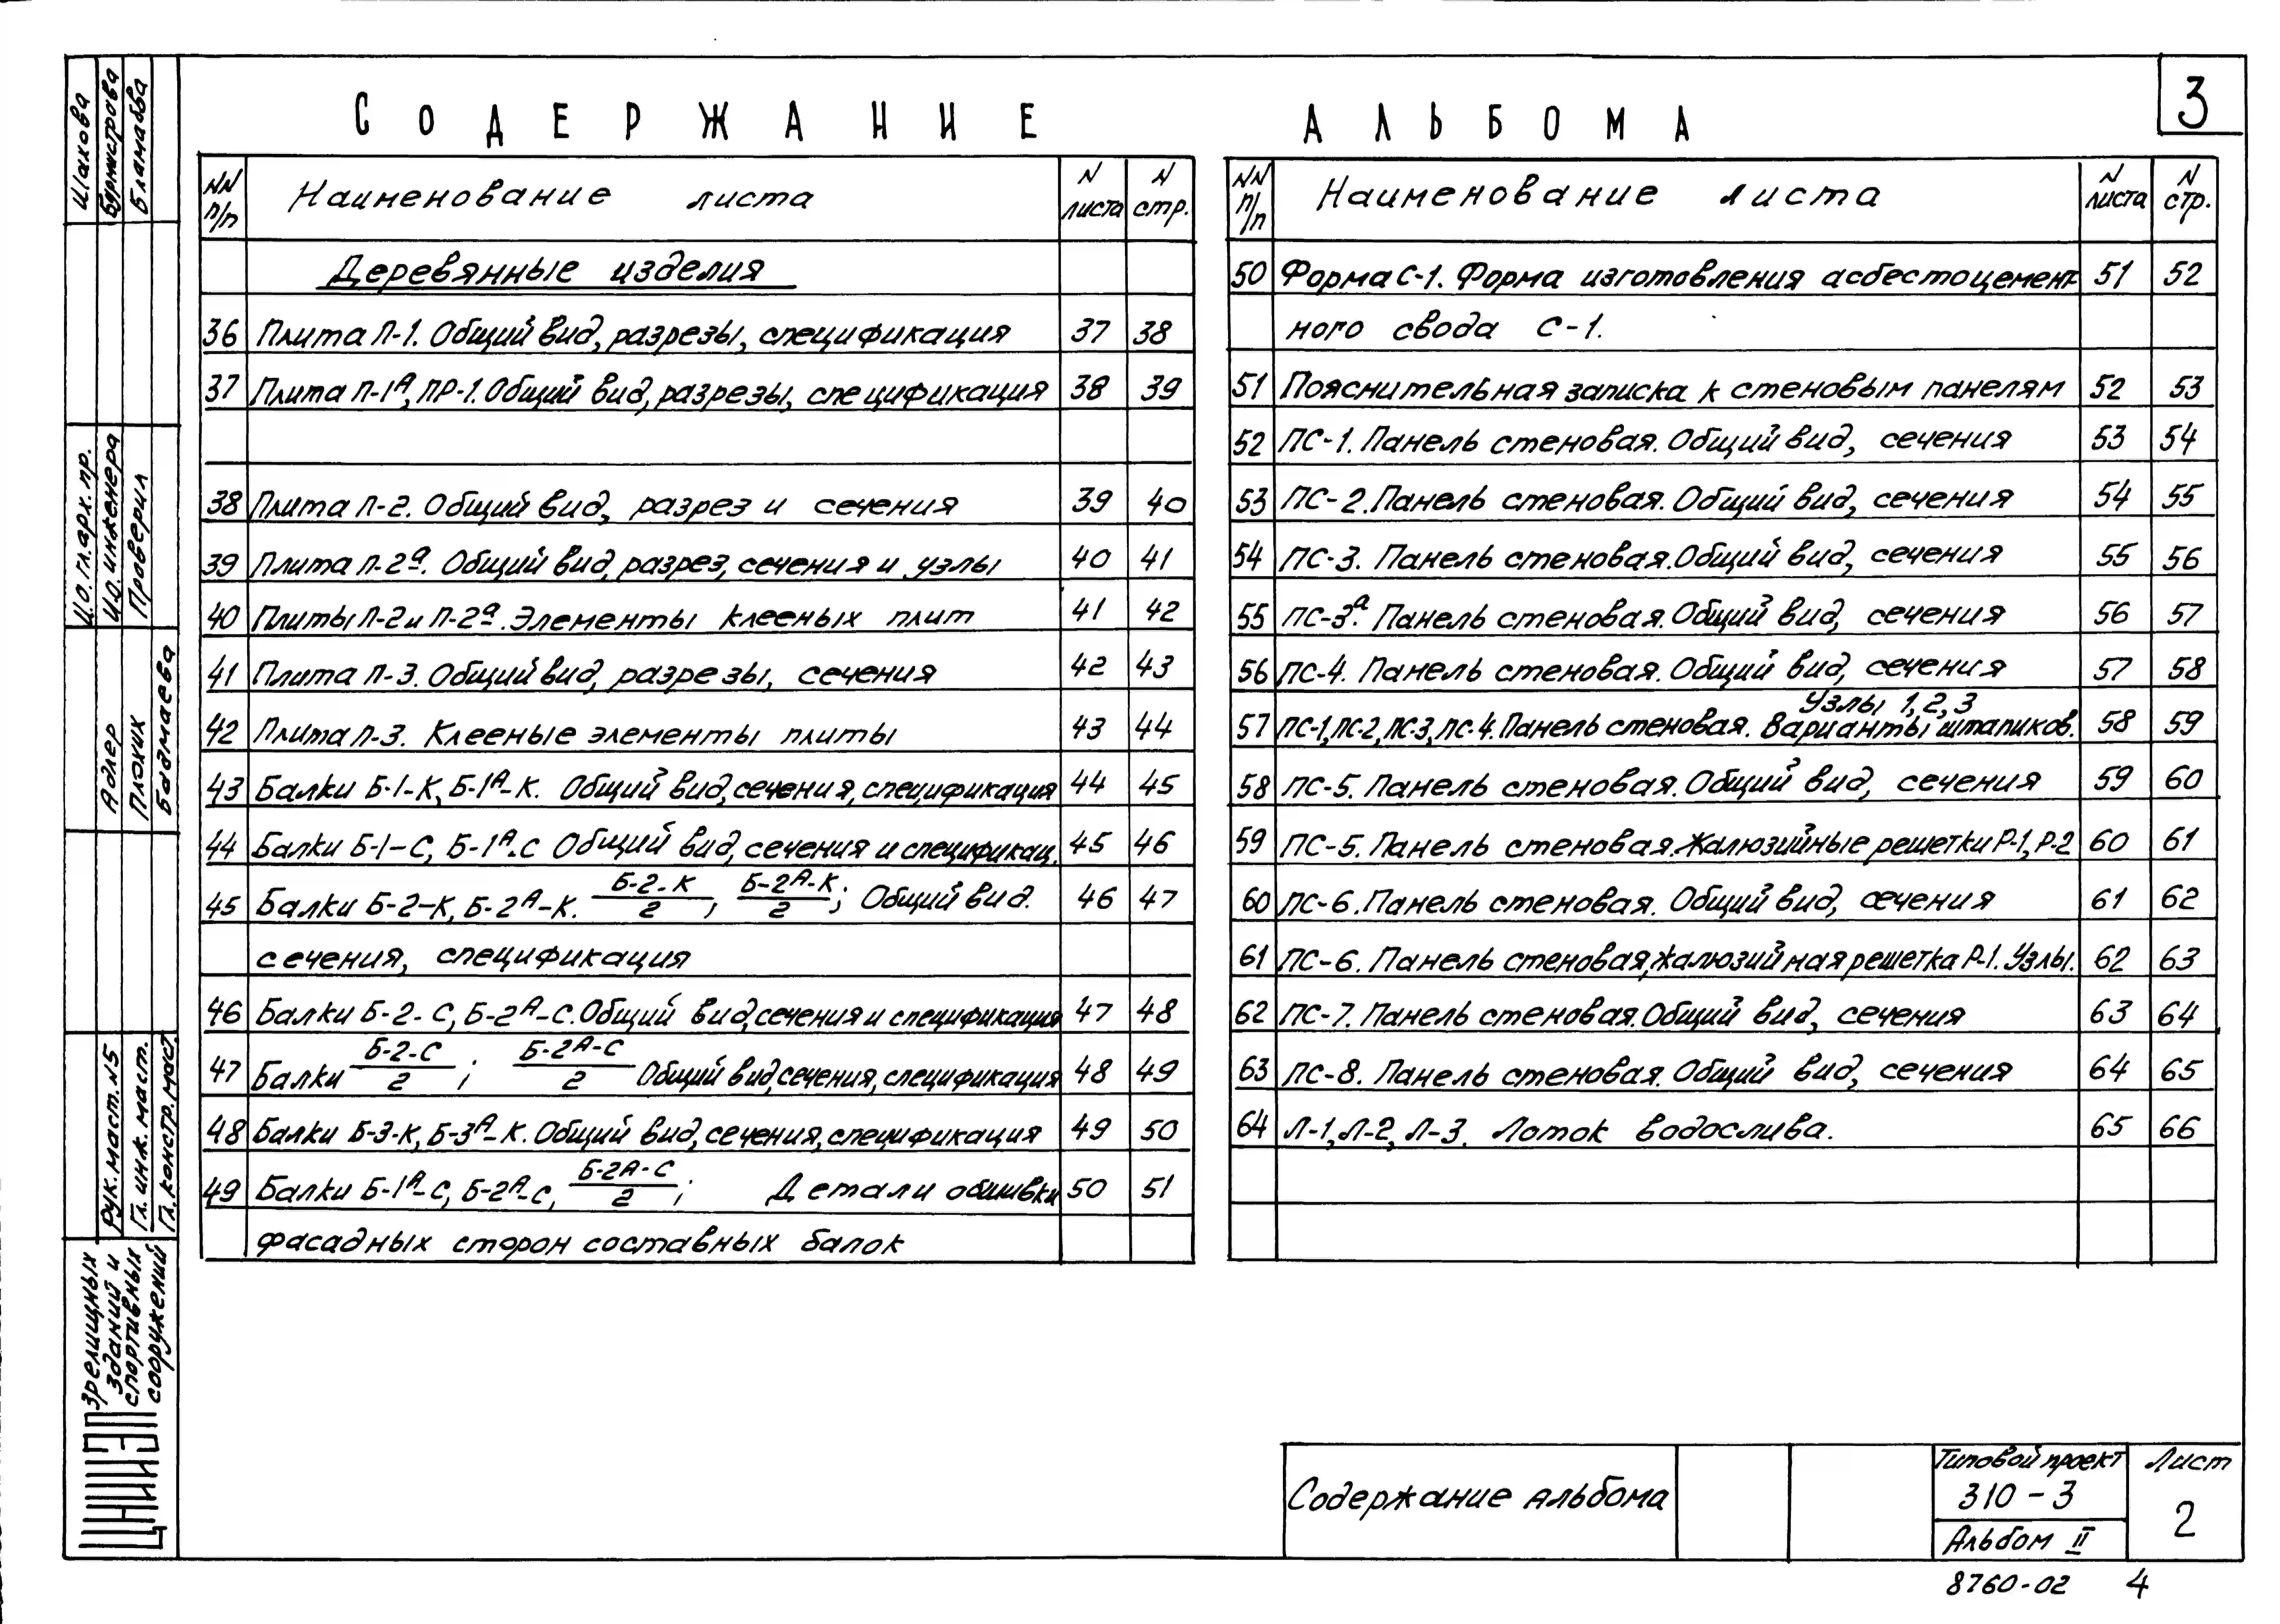 СОДЕРЖАНИЕ АЛЬБОМА
3
NN п/п Наименование листа N листа N стр.
Деревянные изделия
36 Плита П-1. Общий вид, разрезы, спецификация 37 38
37 Плита П-1А, ПР-1. Общий вид, разрезы, спецификация 38 39
38 Плита П-2. Общий вид, разрез и сечения 39 40
39 Плита П-2а. Общий вид, разрез, сечения и узлы 40 41
40 Плиты П-2 и П-2а. Элементы клееных плит 41 42
41 Плита П-3. Общий вид, разрезы, сечения 42 43
42 Плита П-3. Клееные элементы плиты 43 44
43 Балки Б-1-К, Б-1А-К. Общий вид, сечения, спецификация 44 45
44 Балки Б-1-С, Б-1А-С Общий вид, сечения и спецификац. 45 46
45 Балки Б-2-К, Б-2А-К. Б-2-К/2, Б-2А-К/2; Общий вид. 46 47
сечения, спецификация
46 Балки Б-2-С, Б-2А-С. Общий вид, сечения и спецификация 47 48
47 Балки Б-2-С/2; Б-2А-С/2 Общий вид, сечения, спецификация 48 49
48 Балки Б-3-К, Б-3А-К. Общий вид, сечения, спецификация 49 50
49 Балки Б-1А-С, Б-2А-С, Б-2А-С/2; Детали обшивки 50 51
фасадных сторон составных балок
NN п/п Наименование листа N листа N стр.
50 Форма С-1. Форма изготовления асбестоцемент- 51 52
ного свода С-1.
51 Пояснительная записка к стеновым панелям 52 53
52 ПС-1. Панель стеновая. Общий вид, сечения 53 54
53 ПС-2. Панель стеновая. Общий вид, сечения 54 55
54 ПС-3. Панель стеновая. Общий вид, сечения 55 56
55 ПС-3а. Панель стеновая. Общий вид, сечения 56 57
56 ПС-4. Панель стеновая. Общий вид, сечения 57 58
Узлы 1, 2, 3
57 ПС-1, ПС-2, ПС-3, ПС-4. Панель стеновая. Варианты штапиков. 58 59
58 ПС-5. Панель стеновая. Общий вид, сечения 59 60
59 ПС-5. Панель стеновая. Жалюзийные решетки Р-1, Р-2 60 61
60 ПС-6. Панель стеновая. Общий вид, сечения 61 62
61 ПС-6. Панель стеновая, жалюзийная решетка Р-1. Узлы. 62 63
62 ПС-7. Панель стеновая. Общий вид, сечения 63 64
63 ПС-8. Панель стеновая. Общий вид, сечения 64 65
64 Л-1, Л-2, Л-3. Лоток водослива. 65 66
Содержание альбома
Типовой проект
310-3
Альбом II
Лист
2
8760-02 4
Шахова
Бурмистрова
И.О. гл. арх. пр.
И.О. инженера
Проверил
Адлер
Плоких
Бадмаева
Рук. маст. N5
Гл. инж. маст.
Гл. констр. маст.
зрелищных
зданий и
спортивных
сооружений
ЦНИИЭП